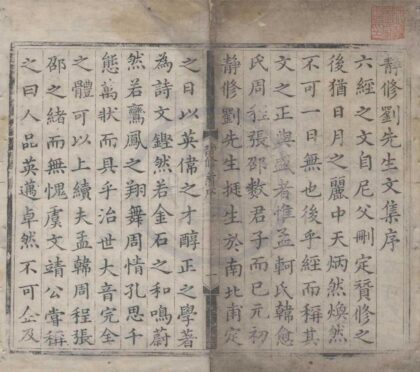 靜修劉先生文集序
六經之文自尼父刪定贊修之
後猶日月之麗中天炳然煥然
不可一日無也後乎經而稱其
文之正與盛者惟孟軻氏韓愈
氏周程張邵數君子而已元初
靜修劉先生挺生於南北甫定
之日以英偉之才醇正之學著
為詩文鏗然若金石之和鳴蔚
然若鸞鳳之翔舞周情孔思千
態萬狀而具乎治世大音完全
之體可以上續夫孟韓周程張
邵之緒而無愧虞文靖公嘗稱
之曰人品英邁卓然不可企及